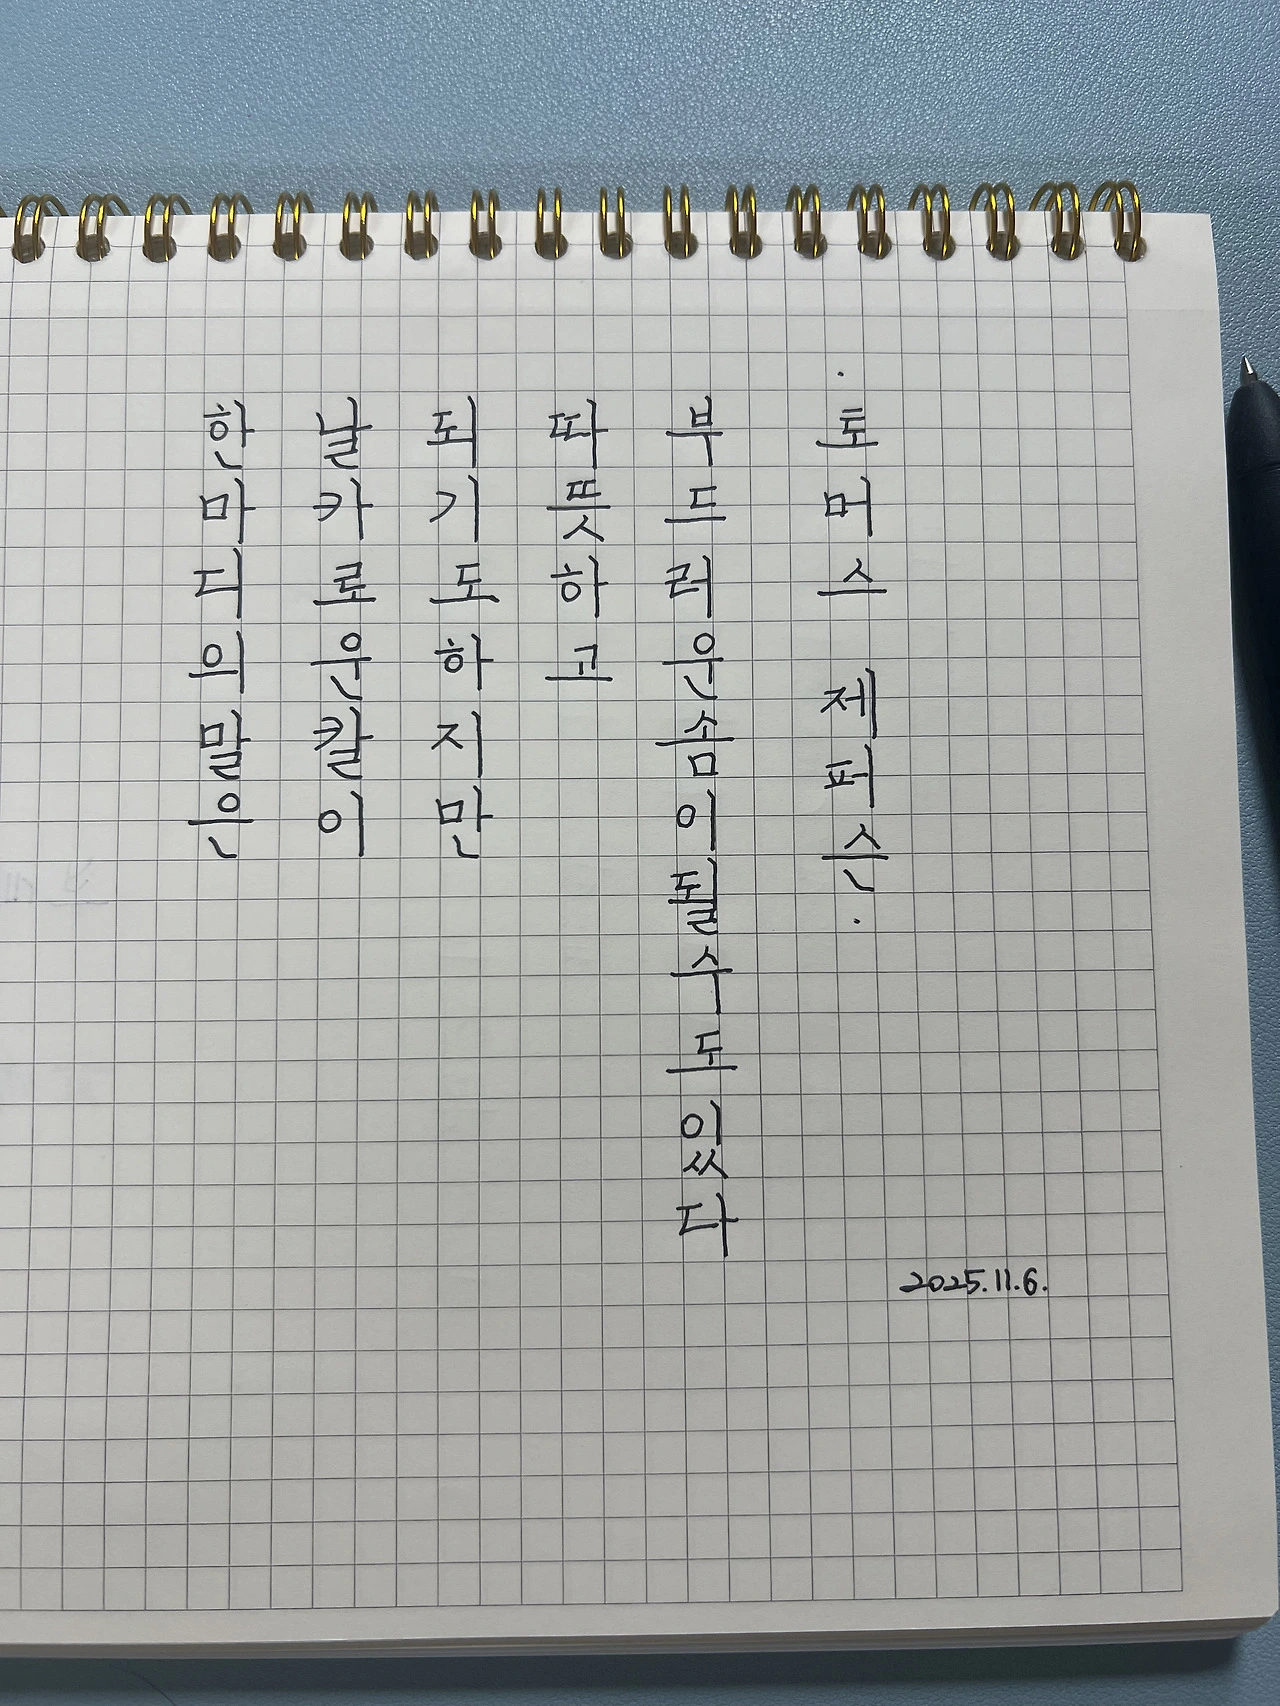 한마디의말은
날카로운칼이
되기도하지만
따뜻하고
부드러운솜이될수도있다
·토머스 제퍼슨·
2025.11.6.